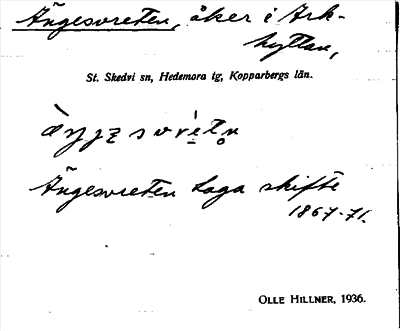 Ängesvreten, åker i Ark-
hyttan,
St. Skedvi sn, Hedemora tg, Kopparbergs län.
Ängesvreten Laga skifte
1867-71.
OLLE HILLNER, 1936.